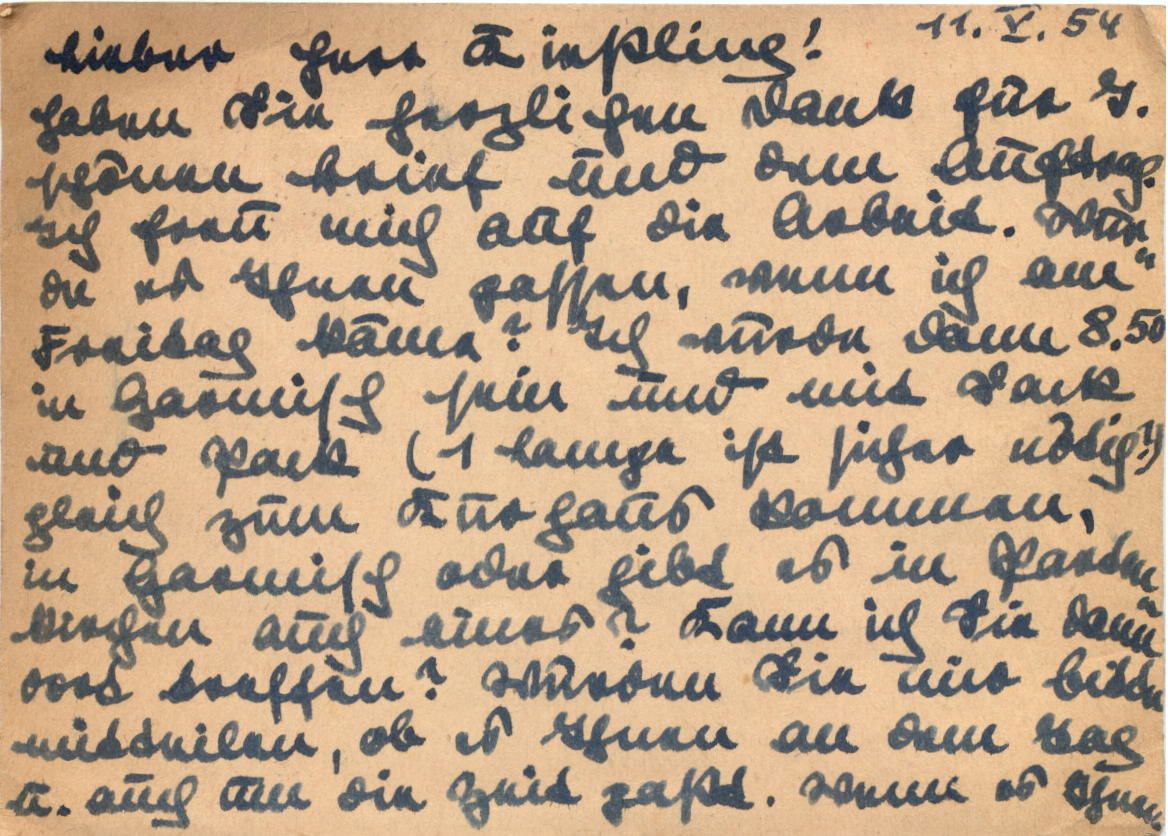 11. V. 54
Lieber Herr Kießling!
haben Sie herzlichen Dank für I.
schönen Brief und den Auftrag.
Ich freu mich auf die Arbeit. Wür=
de es Ihnen passen, wenn ich am
Freitag käme? Ich würde dann 8.50
in Garmisch sein und mit Sack
und Pack (1 Lampe ist sicher nötig!)
gleich zum Kurhaus kommen,
in Garmisch oder gibt es in Parten=
kirchen auch eines? Kann ich Sie dann
dort treffen? Würden Sie mir bitte
mitteilen, ob es Ihnen an dem Tag
u. auch um die Zeit paßt. Wenn es Ihnen